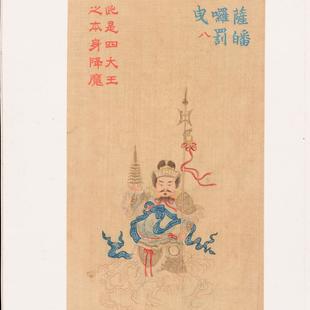 薩皤
囉罰
曳
八
此是四大王
之本身降魔